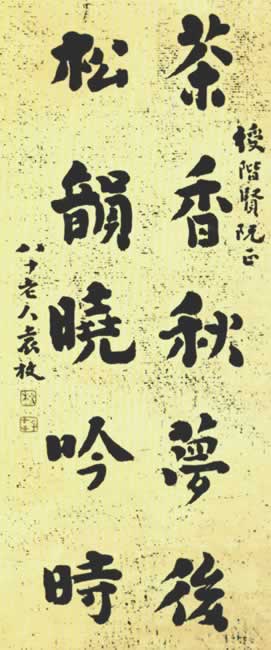 綬階賢阮正
茶香秋夢後
松韻曉吟時
八十老人袁枚